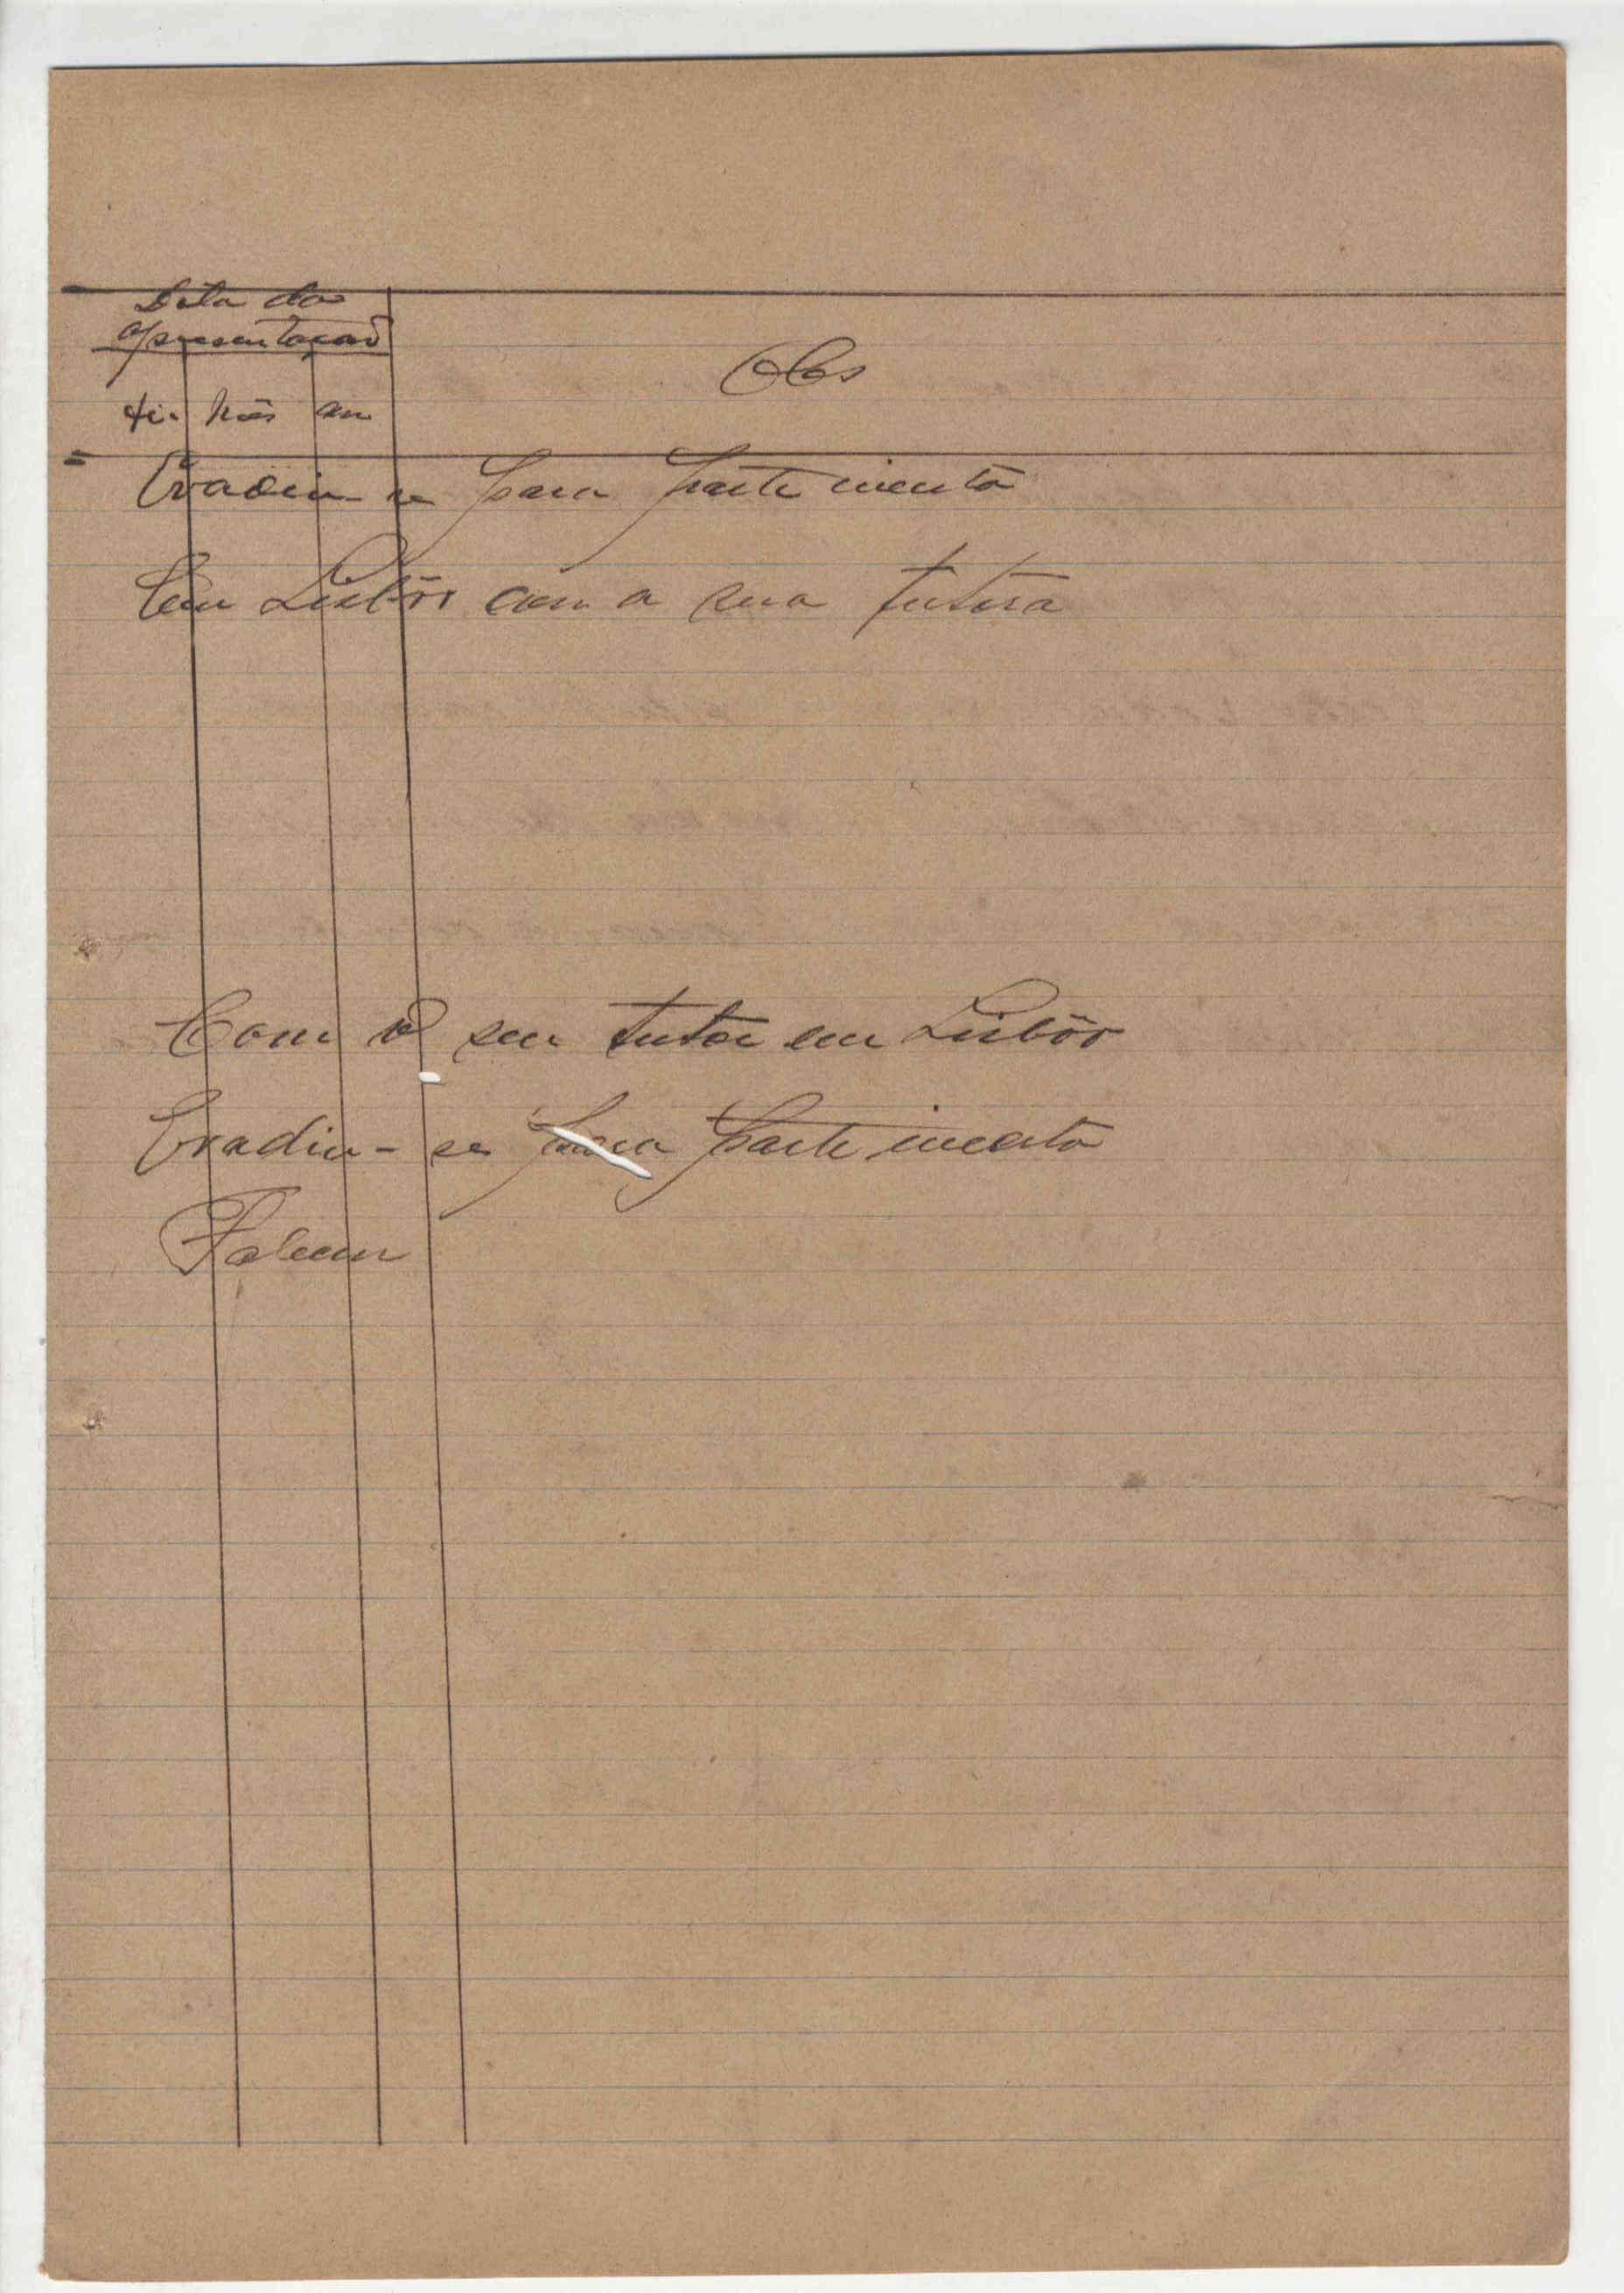 Data da
apresentação
di. mês an
Obs
Evadiu-se para parte incerta
Em Lisbôa com a sua tutora
Com o seu tutor em Lisbôa
Evadiu-se para parte incerta
Faleceu